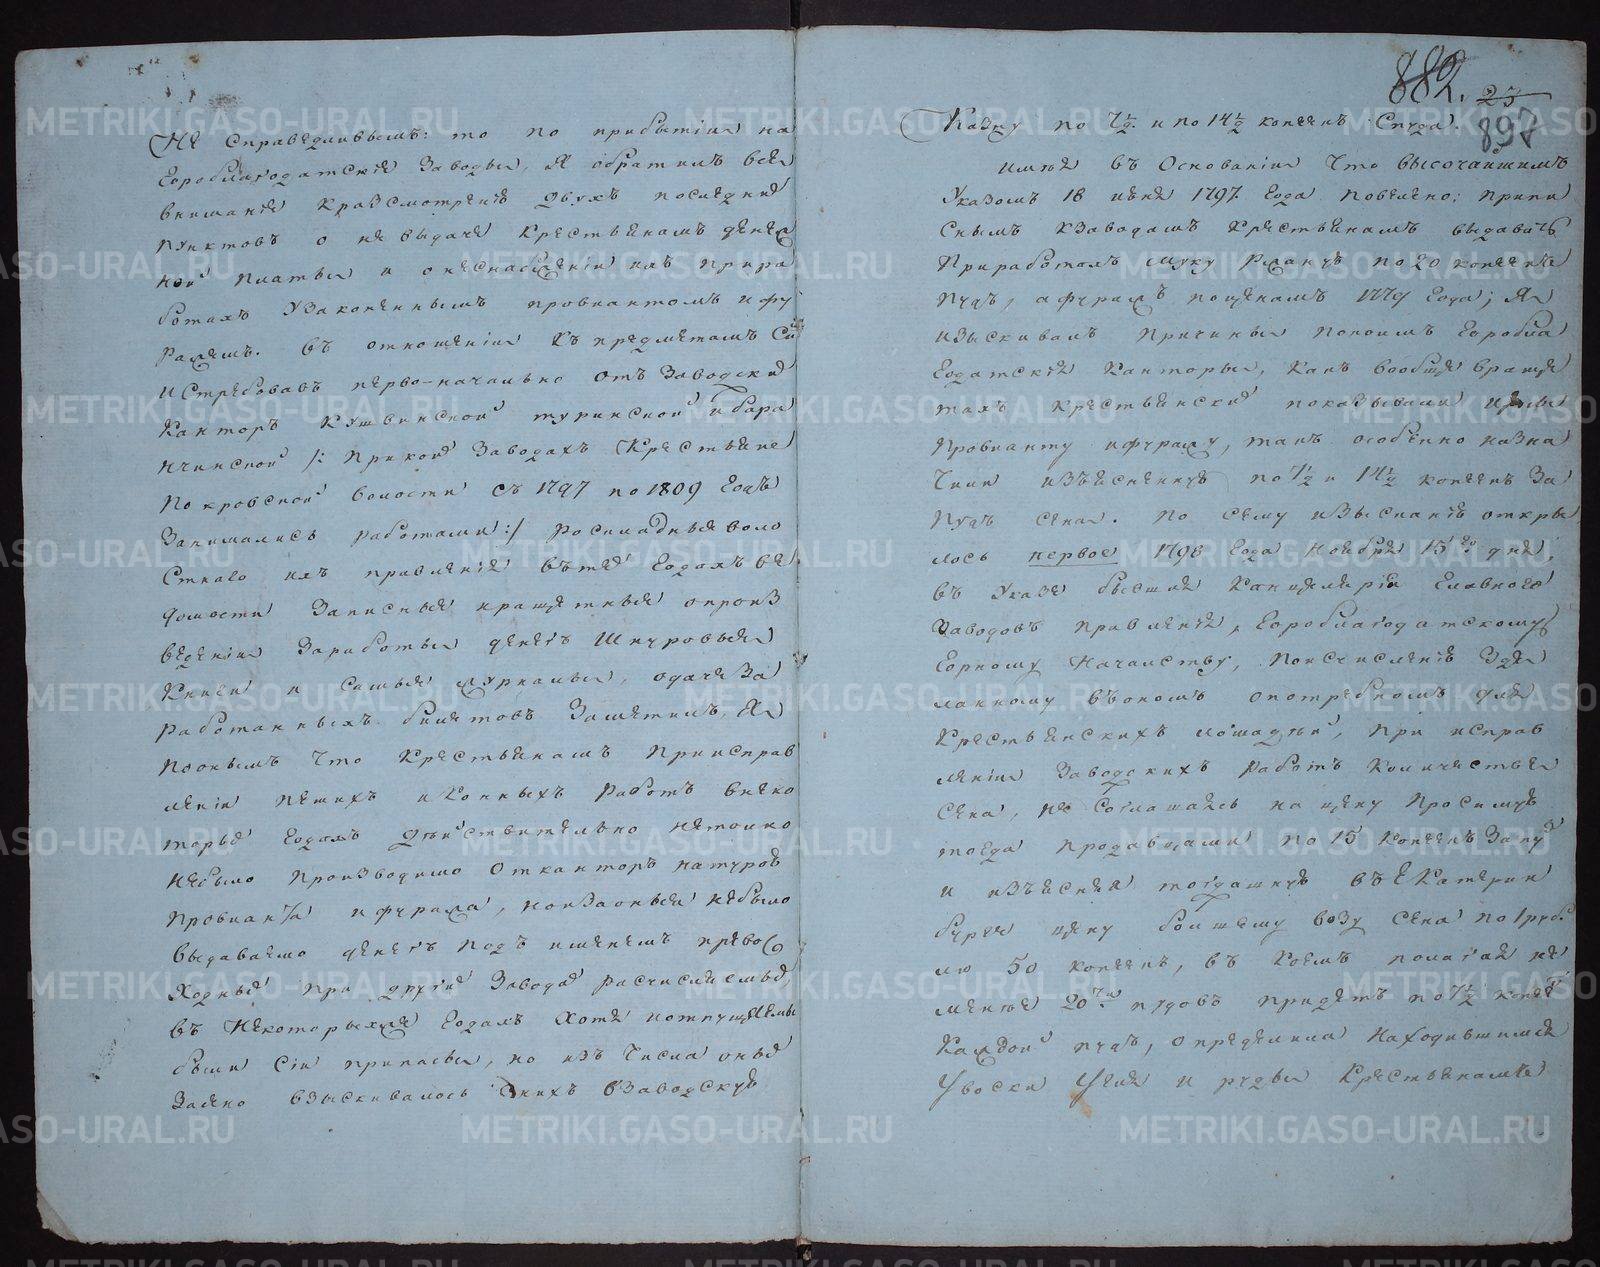 Не справедливымъ: то по прибытіи на
Гороблагодатскіе Заводы, я обратилъ все
вниманіе кразсмотренію двухъ последнихъ
пунктовъ о не выдаче крестьянамъ денеж
ной платы и о неснабженіи ихъ прира
ботахъ узаконеннымъ провиантомъ и фу
ражемъ. въ отношеніи къ предметамъ симъ
истребовавъ перво-начально отъ Заводскихъ
Канторъ Кушвинской туринской и бара
нчинской /: при коихъ Заводахъ Крестьяне
Покровской волости съ 1797 по 1809 годъ
Занимались работами :/ росходныя воло
стнаго ихъ правленія въте годахъ ве
домости Записныя кращетныя опроиз
веденіи Заработы денегъ Шнуровыя
Книги и самыя журналы, одаче За
работанныхъ билетовъ Заметилъ я
поонымъ что крестьянамъ приисправ
леніи пешихъ иконныхъ работъ внеко
торые годахъ действительно нетолко
небыло производимо отканторъ натурою
провианта ифуража, ноизаоныя небыло
выдаваемо денегъ подъ именемъ превосх
ходныя при другіе Завода расчислились,
въ некоторыхже годахъ хотя иотпущаемы
были сіи припасы, но изъ числа оныхъ
Заяно взыскивалось снихъ взаводскую
882. 23
897
Казну по 7½. и по 14½ копеекъ спуда.
имея въ основаніи что высочайшимъ
Указомъ 16 июня 1797. года повелено: припи
снымъ кзаводамъ крестьянамъ выдавать
приработахъ муку ржаную по 20 копеекъ
пудъ, а фуражъ поценамъ 1779 года; я
изыскивалъ причины покоимъ Горобла
годатскія канторы, какъ вообще враще
тахъ крестьянскихъ показывали цены
провианту ифуражу, такъ особенно назна
чили изъясненную по 7½ и 14½ копеекъ за
пудъ сена. по сему изысканію откры
лось первое 1798 года ноября 15го дня,
въ указе бывшей канцеляріи Главного
Заводовъ правленія, Гороблагодатскому
Горному Начальству, поисчисленію зде
ланному въономъ опотребномъ для
Крестьянскихъ лошадей, при исправ
леніи Заводскихъ работъ количестве
сена, не соглашаясь на цену просимую
тогда продавцами по 15 копеекъ запудъ
и изъясняя тогдашнюю въ Екатерин
бурге цену большему возу сена по 1 руб.
лю 50 копеекъ, въ коемъ полагая не
менее 20ти пудовъ придетъ по 7½ копеекъ
каждой пудъ, определила находившимся
Увоски Угля и руды крестьянамъ